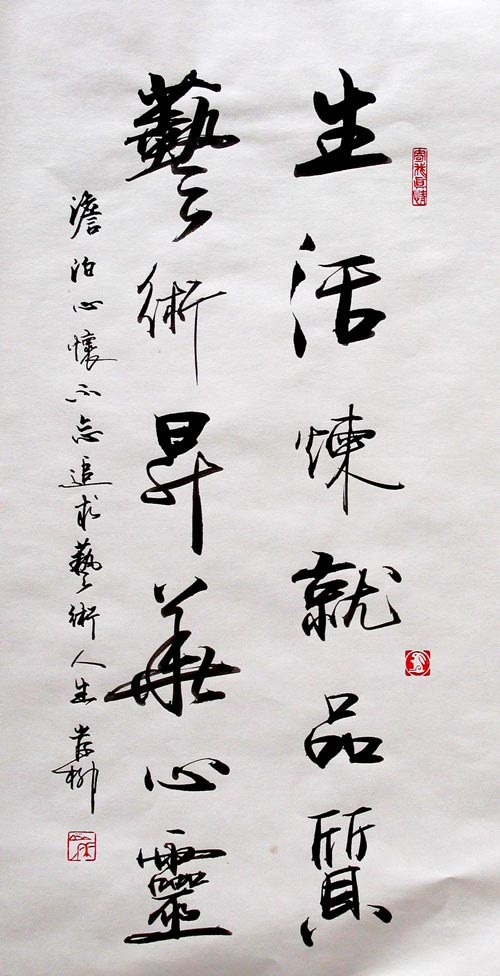 生活煉就品質
藝術昇華心靈
澹泊心懷不忘追求藝術人生